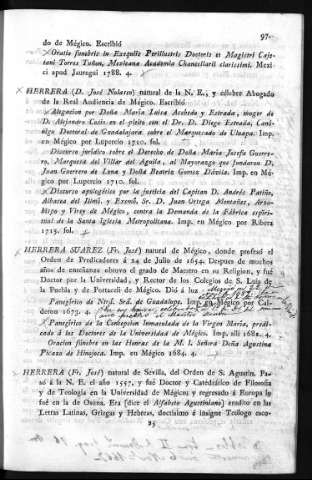 97.
do de Mégico. Escribió
Oratio funebris in Exequiis Perillustris Doctoris et Magistri Caje-
tani Torres Tuñon, Mexicanae Academiae Chancellarii clarissimi. Mexi-
ci apud Jauregui 1788. 4.
HERRERA (D. José Nolasco) natural de la N. E., y célebre Abogado
de la Real Audiencia de Mégico. Escribió
Alegacion por Doña María Luisa Acebedo y Estrada, muger de
D. Alejandro Cosío en el pleito con el Dr. D. Diego Estrada, Canó-
nigo Doctoral de Guadalajara sobre el Marquesado de Uluapa. Imp.
en Mégico por Lupercio 1710. fol.
Discurso jurídico sobre el Derecho de Doña María Josefa Guerre-
ro, Marquesa del Villar del Aguila, al Mayorazgo que fundaron D.
Juan Guerrero de Luna y Doña Beatriz Gomez Dávila. Imp. en Mé-
gico por Lupercio 1710. fol.
Discurso apologético por la justicia del Capitan D. Andrés Patiño,
Albacea del Illmô. y Exemô. Sr. D. Juan Ortega Montañes, Arzo-
bispo y Virey de Mégico, contra la Demanda de la Fábrica espiri-
tual de la Santa Iglesia Metropolitana. Imp. en Mégico por Ribera
1715. fol.
HERRERA SUAREZ (Fr. José) natural de Mégico, donde profesó el
Orden de Predicadores á 24 de Julio de 1654. Despues de muchos
años de enseñanza obtuvo el grado de Maestro en su Religion, y fué
Doctor por la Universidad, y Rector de los Colegios de S. Luis de
la Puebla y de Portaceli de Mégico. Dió á luz
Panegírico de Ntrâ. Srâ. de Guadalupe. Imp. en Mégico por Cal-
deron 1673. 4.
Panegírico de la Concepcion Inmaculada de la Vírgen María, predi-
cado á los Doctores de la Universidad de Mégico. Imp. alli 1682. 4.
Oracion fúnebre en las Honras de la M. I. Señora Doña Agustina
Picazo de Hinojosa. Imp. en Mégico 1684. 4.
HERRERA (Fr. José) natural de Sevilla, del Orden de S. Agustin. Pa-
só á la N. E. el año 1557, y fué Doctor y Catedrático de Filosofía
y de Teología en la Universidad de Mégico; y regresado á Europa lo
fué en la de Osuna. Era (dice el Alfabeto Agustiniano) erudito en las
Letras Latinas, Griegas y Hebreas, doctísimo é insigne Teólogo esco-
25